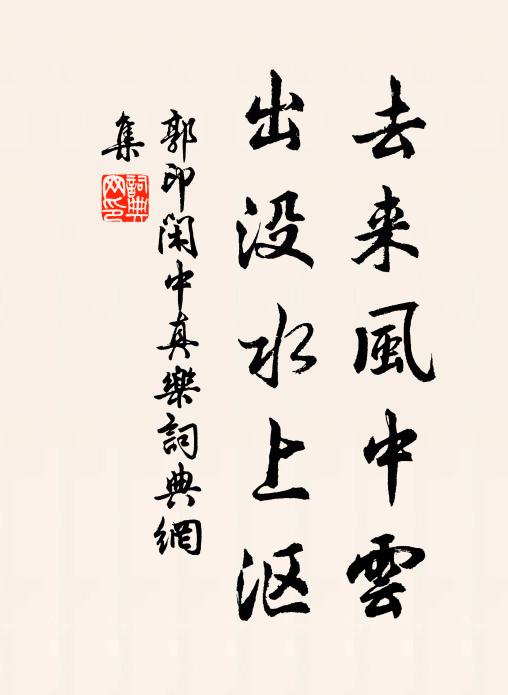 去来風中雲
出没水上沤
郭印闲中真樂詞典網
集
詞典
网印